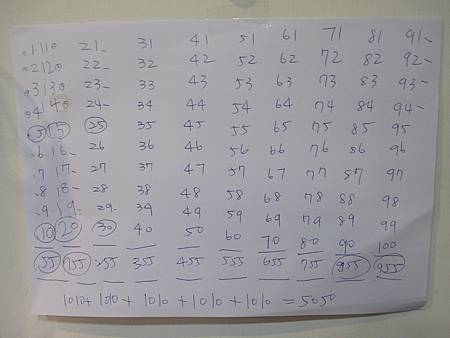 1 11 21 31 41 51 61 71 81 91
2 12 22 32 42 52 62 72 82 92
3 13 23 33 43 53 63 73 83 93
4 14 24 34 44 54 64 74 84 94
5 15 25 35 45 55 65 75 85 95
6 16 26 36 46 56 66 76 86 96
7 17 27 37 47 57 67 77 87 97
8 18 28 38 48 58 68 78 88 98
9 19 29 39 49 59 69 79 89 99
10 20 30 40 50 60 70 80 90 100
55 155 255 355 455 555 655 755 855 955
1010 + 1010 + 1010 + 1010 + 1010 = 5050